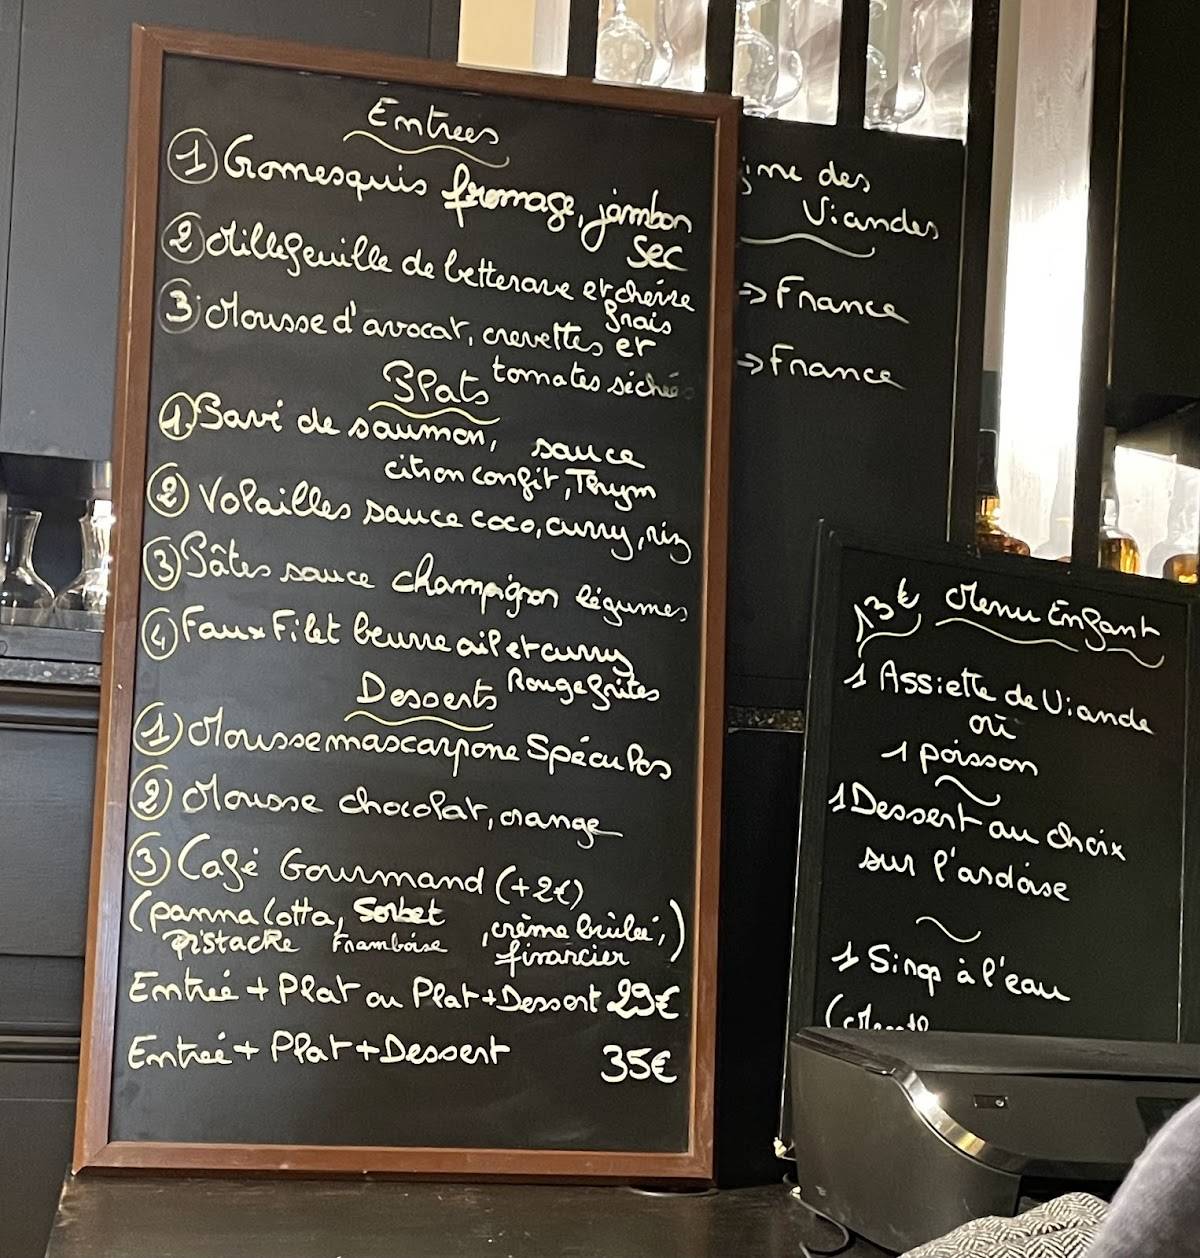 Entrees
1 Cromesquis fromage, jambon
sec
2 Millefeuille de betterave et chèvre
frais
3 Mousse d'avocat, crevettes et
tomates séchée
Plats
1 Pavé de saumon, sauce
citron confit, Thym
2 Volailles sauce coco, curry, riz
3 Pâtes sauce champignon légumes
4 Faux Filet beurre ail et curry
Rouge frites
Desserts
1 Mousse mascarpone Spéculos
2 Mousse chocolat, orange
3 Café Gourmand (+2€)
(panna cotta, Sorbet, crème brulée,)
pistache Framboise financier
Entrée + Plat ou Plat + Dessert 29€
Entrée + Plat + Dessert 35€
ine des
Viandes
⇒ France
⇒ France
13€ Menu Enfant
1 Assiette de Viande
ou
1 poisson
1 Dessert au choix
sur l'ardoise
1 Sirop à l'eau